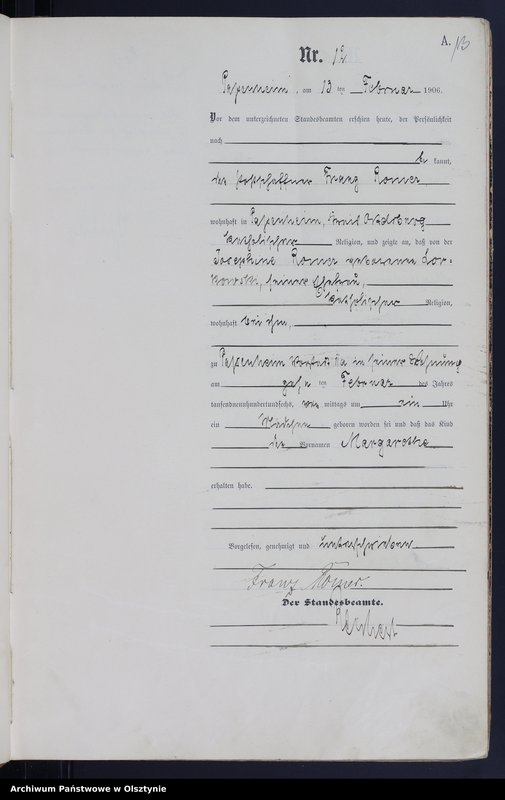 A.
13
Nr. 12
Papenheim, am 13 ten Februar 1906.
Vor dem unterzeichneten Standesbeamten erschien heute, der Persönlichkeit
nach
be kannt,
der Postschaffner Franz
wohnhaft in Papenheim, Kreis Ortelsburg
katholischer Religion, und zeigte an, daß von der
Josephine geborenen
seiner Ehefrau,
katholischer Religion,
wohnhaft bei ihm,
zu Papenheim in seiner Wohnung
am zehn ten Februar des Jahres
tausendneunhundertundsechs, vor mittags um ein Uhr
ein Mädchen geboren worden sei und daß das Kind
die Vornamen Margarethe
erhalten habe.
Vorgelesen, genehmigt und unterschrieben
Franz
Der Standesbeamte.
Archiwum Państwowe w Olsztynie